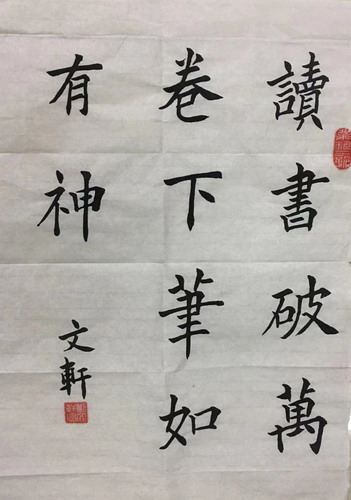 讀書破萬
卷下筆如
有神
文軒